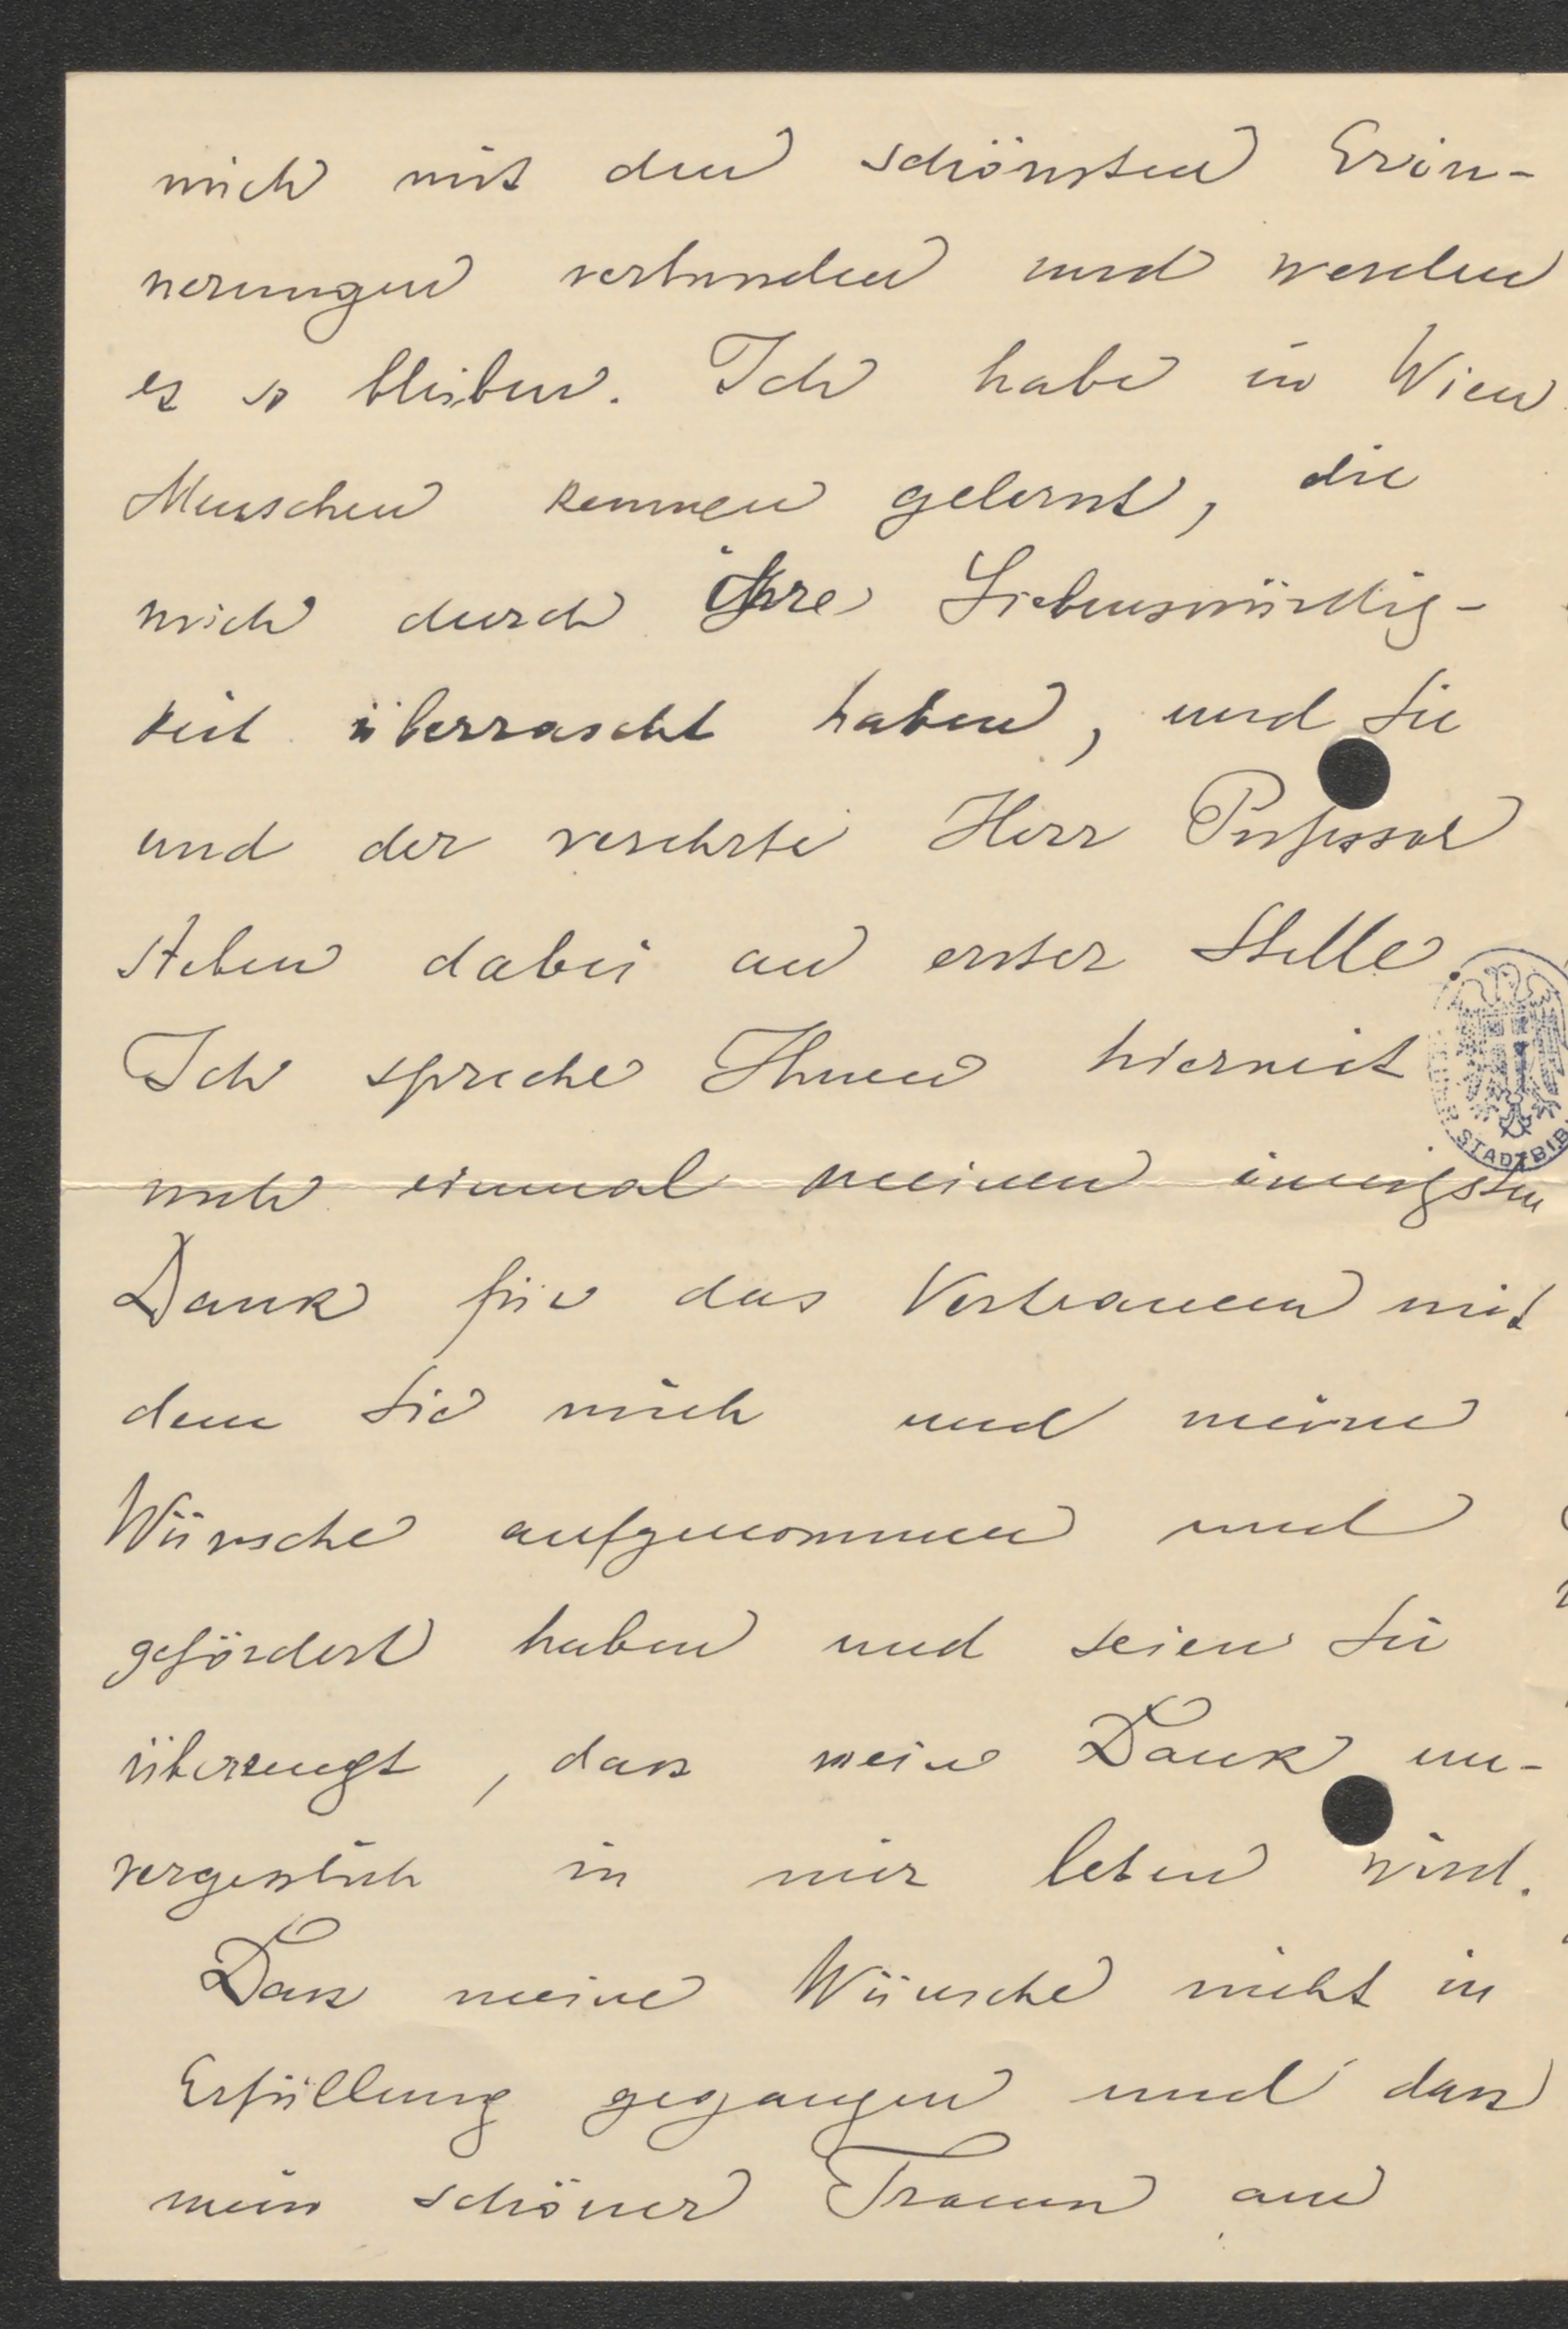 mich mit den schönsten Erin-
nerungen verbunden und werden
es so bleiben. Ich habe in Wien
Menschen kennen gelernt, die
mich durch ihre Liebenswürdig-
keit überrascht haben, und Sie
und der verehrte Herr Professor
stehen dabei an erster Stelle.
Ich spreche Ihnen hiermit
noch einmal meinen innigsten
Dank für das Vertrauen mit
dem Sie mich und meine
Wünsche aufgenommen und
gefördert haben und seien Sie
überzeugt, dass mein Dank un-
vergesslich in mir leben wird.
Dass meine Wünsche nicht in
Erfüllung gegangen und dass
mein schöner Traum an
STADTBIB